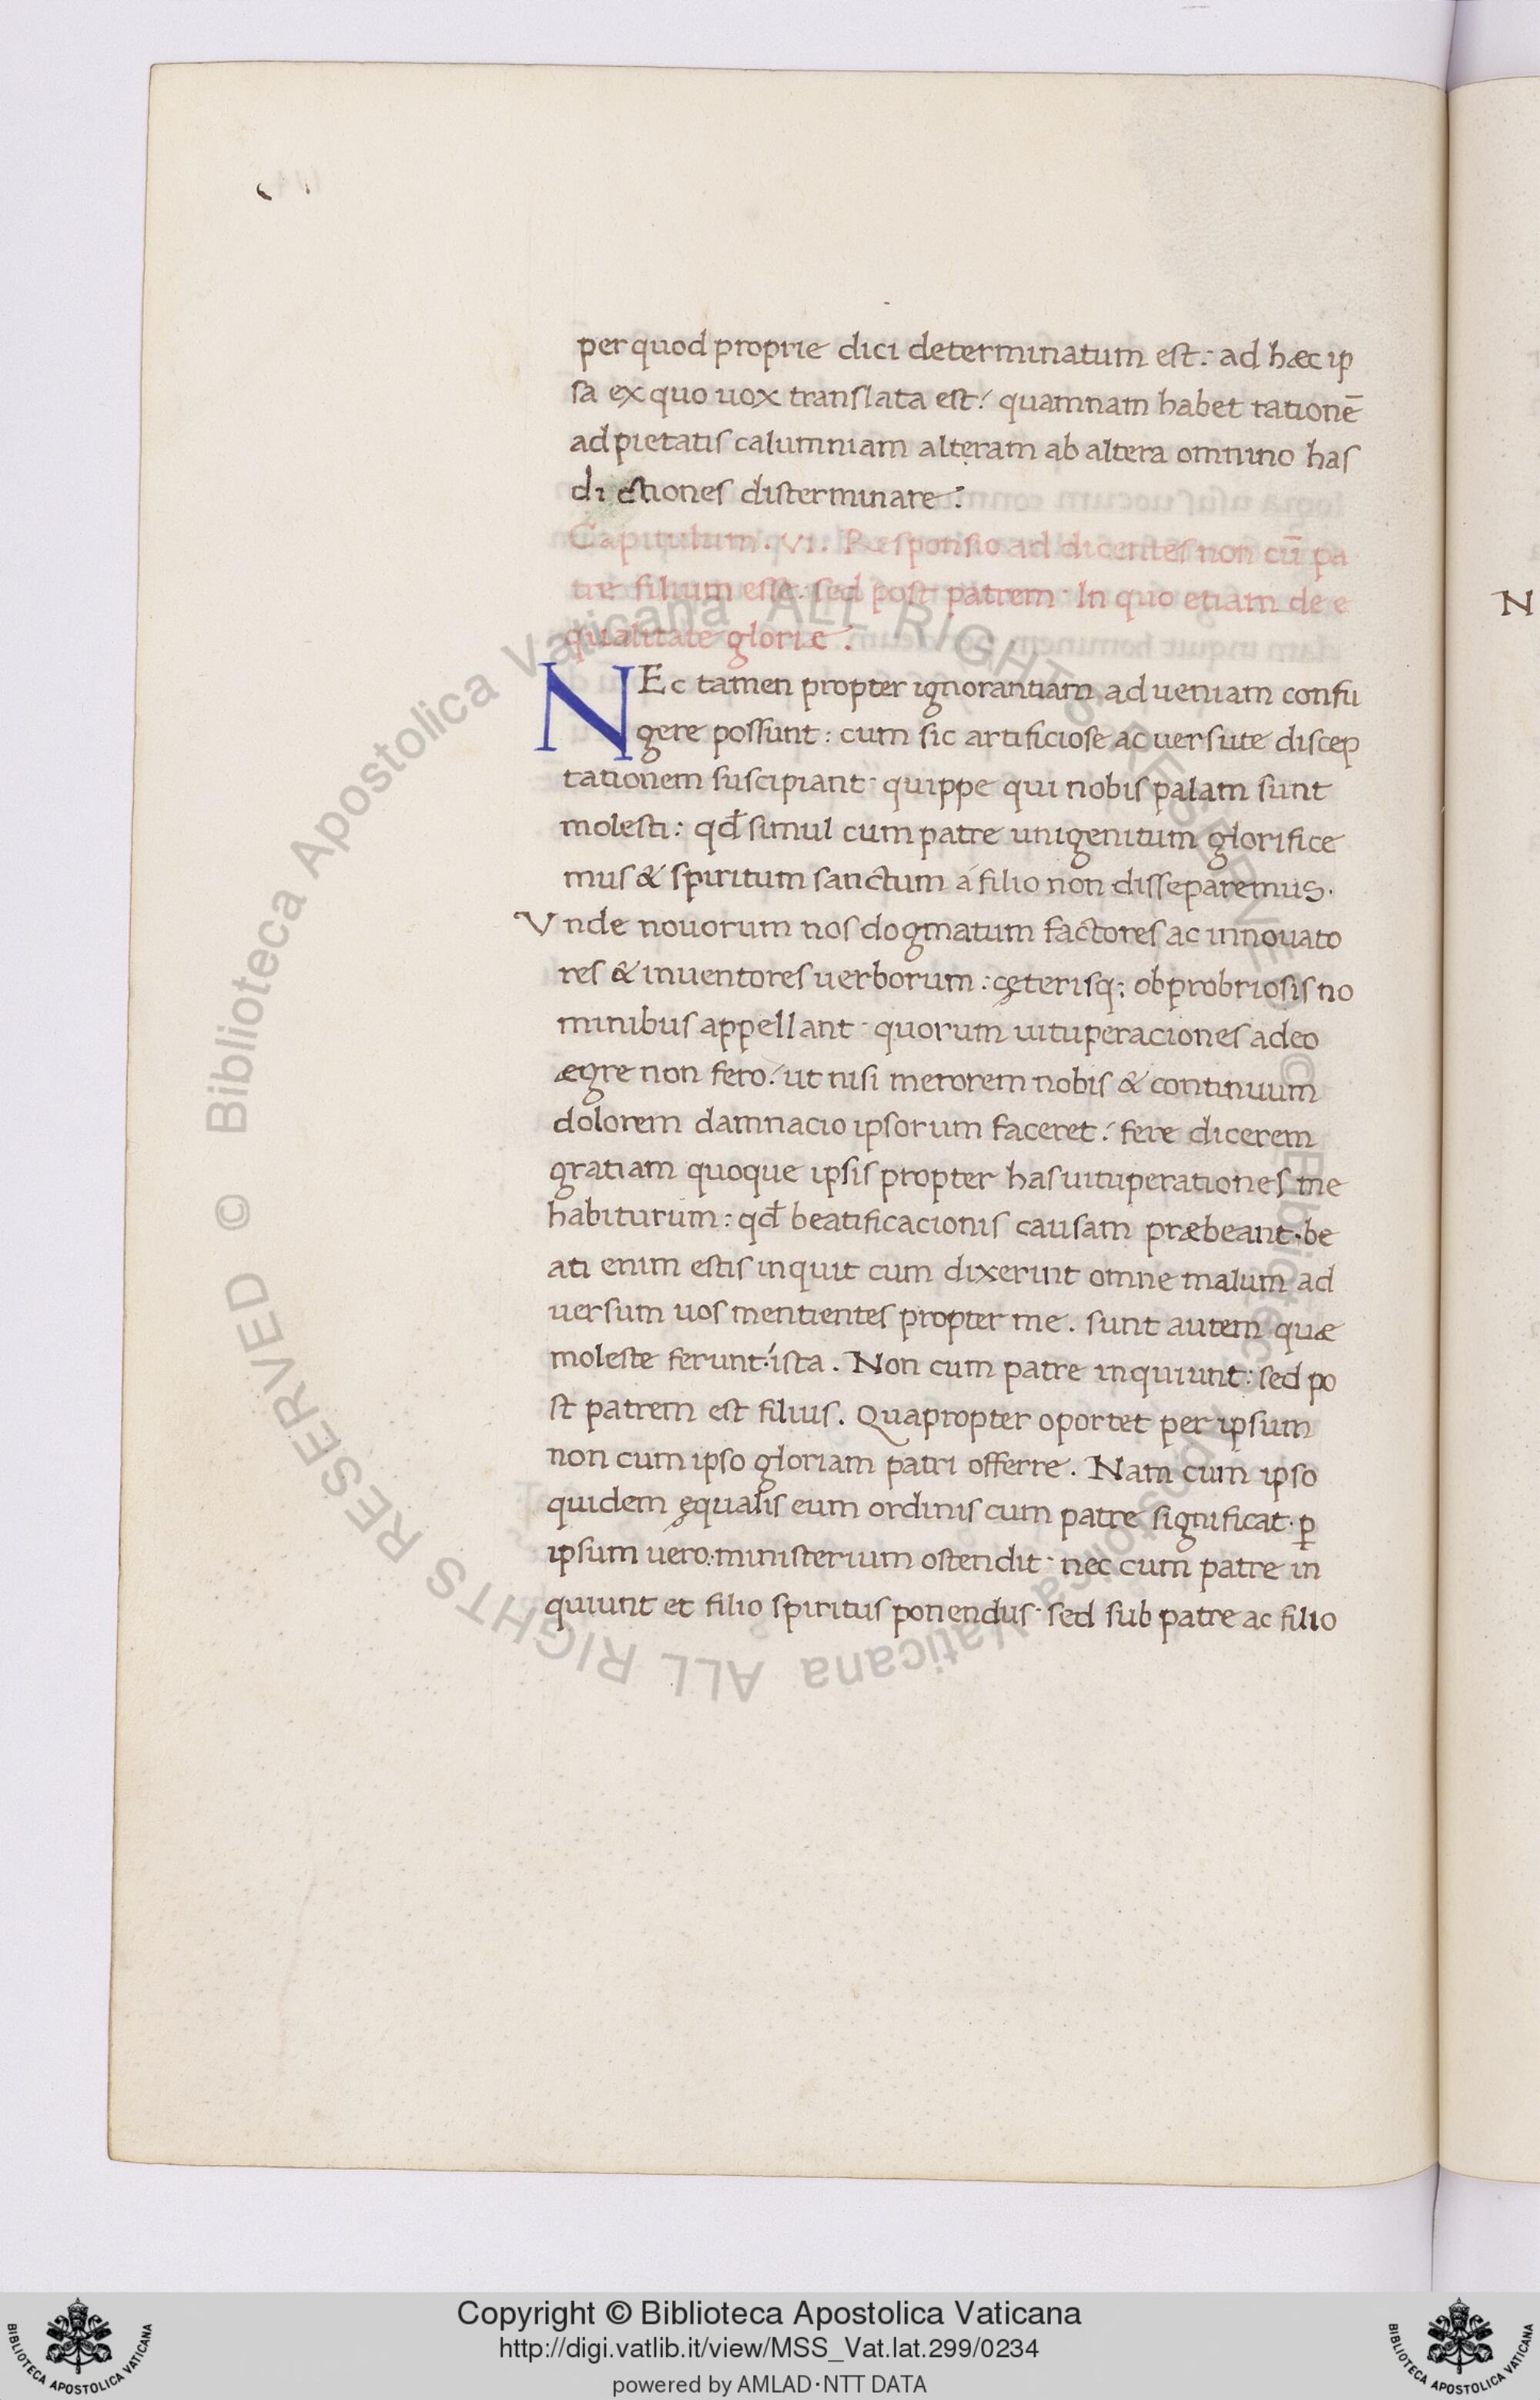 per quod proprie dici determinatum est: ad hæc ip
sa ex quo uox translata est: quamnam habet rationē
ad pietatis calumniam alteram ab altera omnino has
dictiones disterminare.
Capitulum. VI. Responsio ad dicentes non cū pa
tre filium esse. sed post patrem. In quo etiam de e
qualitate gloriæ.
NEc tamen propter ignorantiam ad ueniam confu
gere possunt: cum sic artificiose ac uersute discep
tationem suscipiant. quippe qui nobis palam sunt
molesti: qđ simul cum patre unigenitum glorifice
mus & spiritum sanctum á filio non disseparemus.
Vnde nouorum nos dogmatum factores ac innouato
res & inuentores uerborum: cęterisq; obprobriosis no
minibus appellant. quorum uituperaciones adeo
ægre non fero: ut nisi merorem nobis & continuum
dolorem damnacio ipsorum faceret: fere dicerem
gratiam quoque ipsis propter has uituperationes me
habiturum: qđ beatificacionis causam præbeant. be
ati enim estis inquit cum dixerint omne malum ad
uersum uos mentientes propter me. sunt autem quæ
moleste ferunt. ista. Non cum patre inquiunt: sed po
st patrem est filius. Quapropter oportet per ipsum
non cum ipso gloriam patri offerre. Nam cum ipso
quidem ęqualis eum ordinis cum patre significat. ꝑ
ipsum uero. ministerium ostendit. nec cum patre in
quiunt et filio spiritus ponendus. sed sub patre ac filio
N
© Biblioteca Apostolica Vaticana ALL RIGHTS RESERVED
© Biblioteca Apostolica Vaticana ALL RIGHTS RESERVED
Copyright © Biblioteca Apostolica Vaticana
http://digi.vatlib.it/view/MSS_Vat.lat.299/0234
powered by AMLAD·NTT DATA
BIBLIOTECA APOSTOLICA VATICANA
BIBLIOTECA APOSTOLICA VATICANA